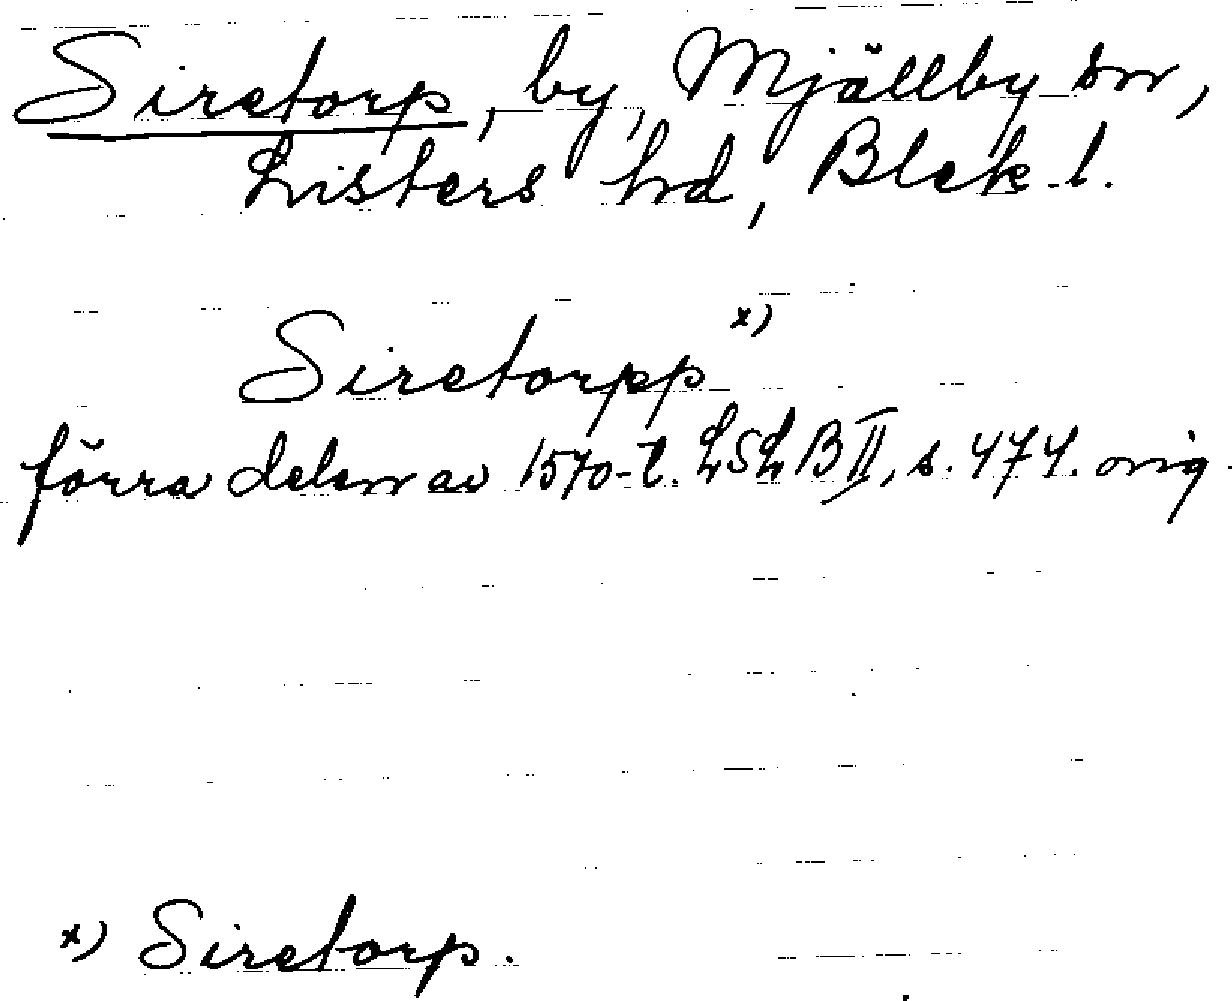 Siretorp, by, Mjällby sn,
Listers hd, Blek l.
Siretorpp x)
förra delen av 1570-t. LSLB II, s. 474. orig.
x) Siretorp.